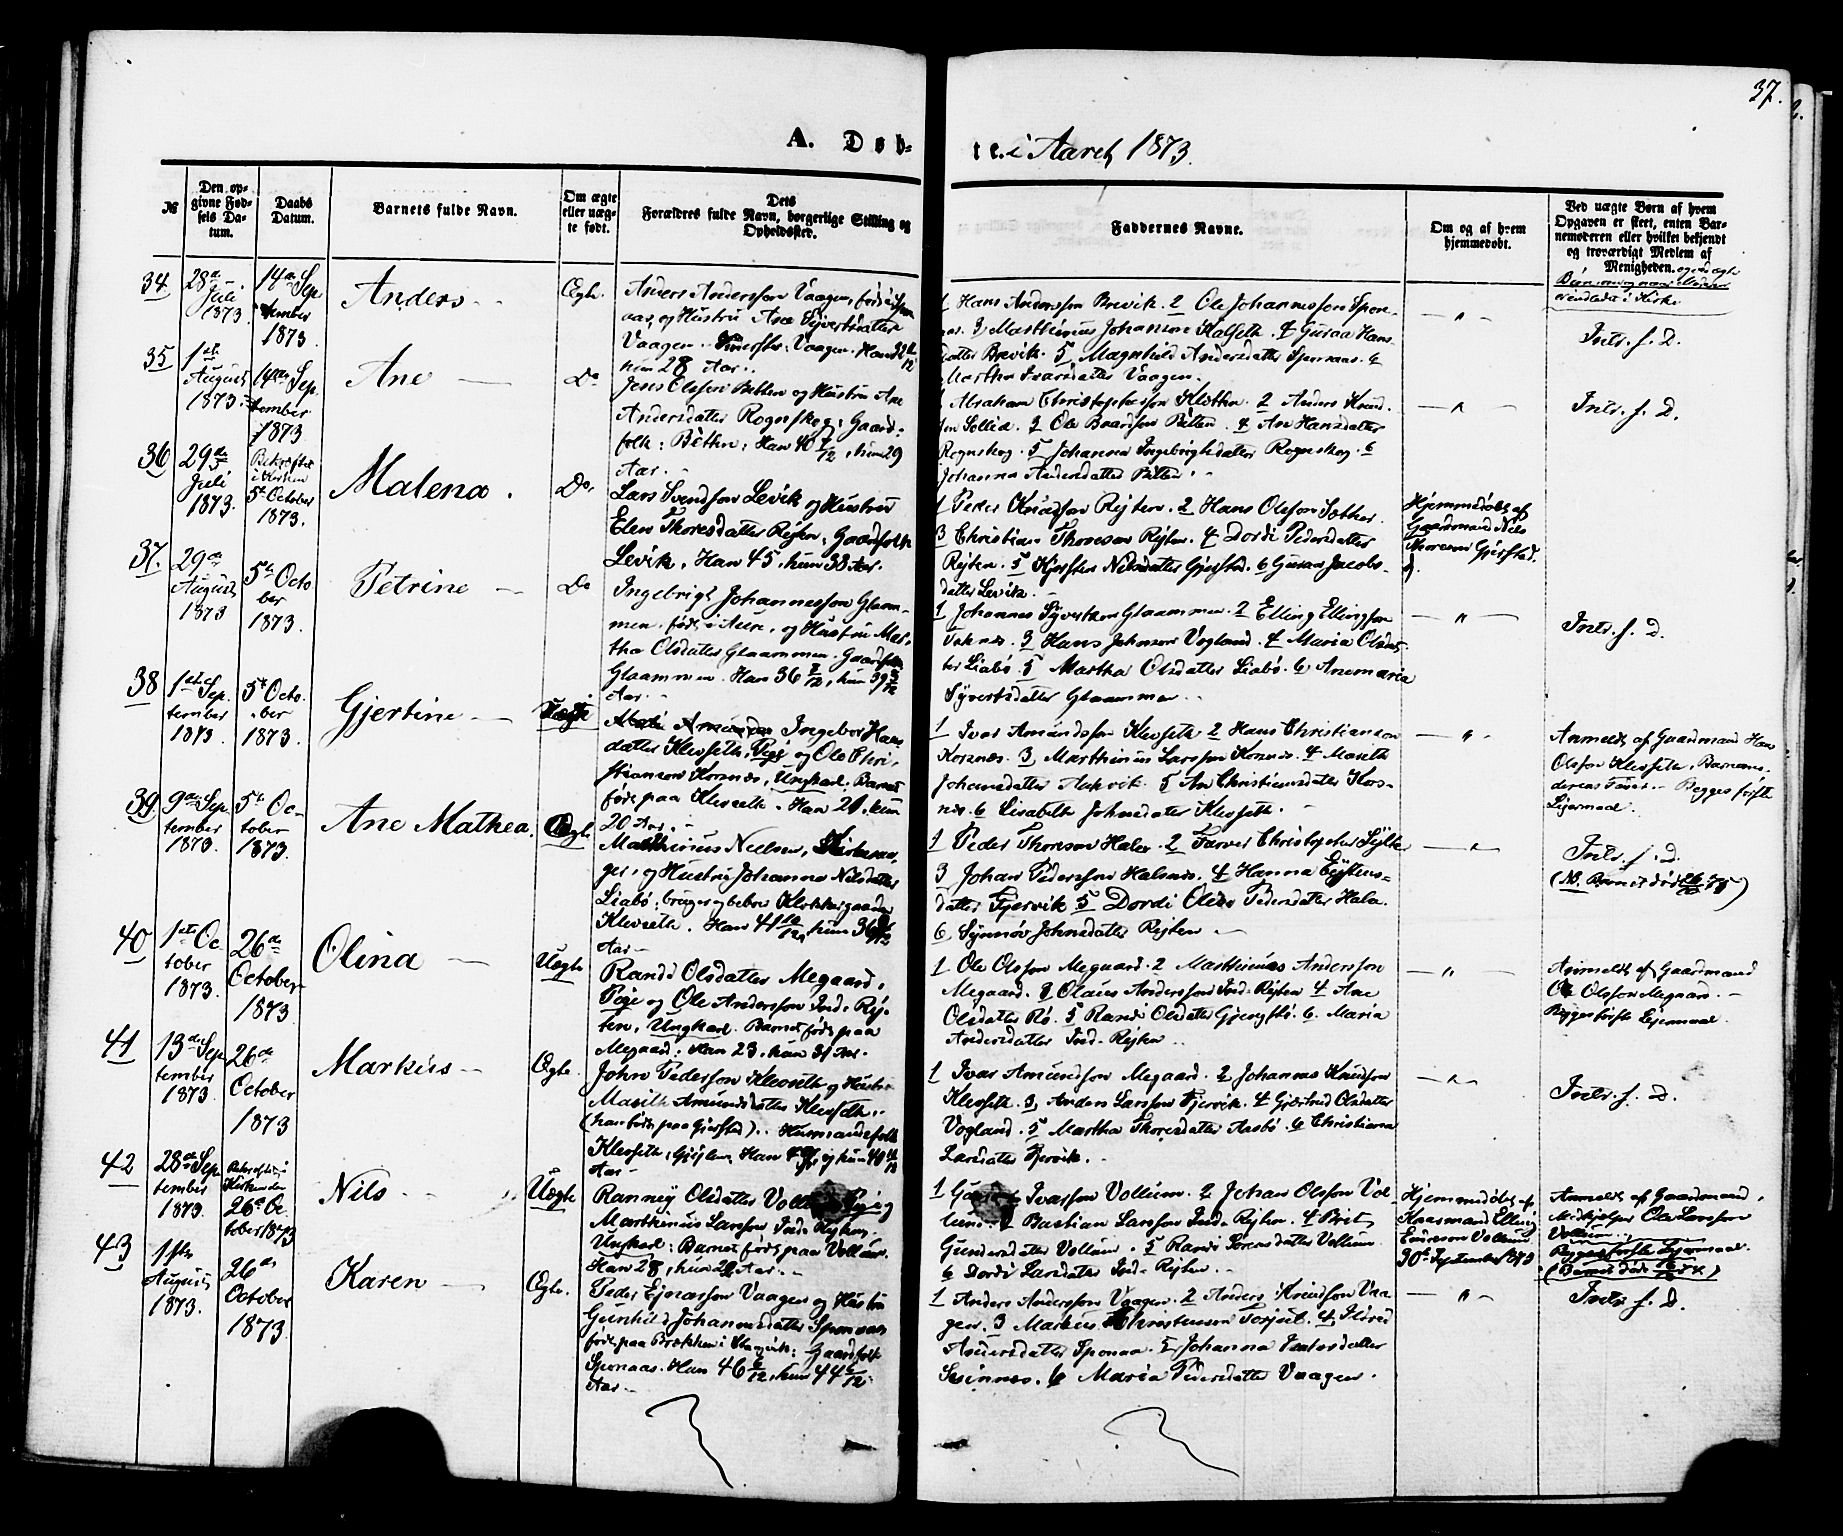 37.
A. Døb-
te. i Aaret 1873.
№
Den op-
givne Fød-
sels Da-
tum.
Daabs
Datum.
Barnets fulde Navn.
Om ægte
eller uæg-
te født.
Dets
Forældres fulde Navn, borgerlige Stilling og
Opholdssted.
Faddernes Navne.
Om og af hvem
hjemmedøbt.
Ved uægte Børn af hvem
Opgaven er skeet, enten Bar-
nemoderen eller hvilket bekjendt
og troværdigt Medlem af
Menigheden.
34.
28de
Juli
1873.
14de Sep
tember
1873.
Anders
Ægte.
Anders Andersson Vaagen, født i Spon
aas, og Hustru Ane Syvertsdatter
Vaagen.
hun 28 Aar.
1 Hans Andersson Brevik. 2 Ole Johannesson Spon-
aas. 3 Marthinus Johansson Halseth. 4 Guroa Hans
datter Brevik. 5 Magnhild Andersdatter Sponaas. 6
Martha Ivarsdatter Vaagen.
— " —
Intr. f. D.
35
1ste
August
1873.
14de Sep
tember
1873
Ane
Do
Jens Olsson Botten og Hustru Ane
Andersdatter Rognskog, Gaard-
folk: Botten: Han 40 7/12, hun 29
Aar.
1 Abraham Christophersson Kletten. 2 Anders Knud-
son Sollid. 3 Ole Baardson Botten. 4 An Hansdatter
Rognskog. 5 Johanna Ingebrigtsdatter Rognskog. 6
Johanna Andersdatter Botten.
— " —
Intr. f. D.
36
29de
Juli
1873.
Bekræftet
i Kirken
5te October
1873.
Malena.
Do.
Lars Svendson Levik og Hustru
Elen Thoresdatter Rejten, Gaardfolk
Levik. Han 45, hun 38 Aar.
1 Peder Knudson Rejten. 2 Hans Olsson Sæther.
3 Christian Thoreson Rejten. 4 Dordi Pedersdatter
Rejten. 5 Kjersten Nilsdatter Gjersted. 6 Guroa Jacobs-
datter Levik.
Hjemmedøbt af
Gaardmand Nils
Thoreson Gjersted.
37.
29de
August
1873
5te Octo
ber
1873.
Petrine
Do
Ingebrigt Johannesson Glaam-
men, født i Aure, og Hustru Mar-
tha Olsdatter Glaammen. Gaardfolk
Glaammen. Han 36 7/12, hun 39
Aar.
1 Johannes Syvertson Glaammen. 2 Elling Ellingson
3 Hans Johnson Vogland. 4 Maria Olsdat-
ter Liabø. 5 Martha Olsdatter Liabø. 6 Anemaria
Syvertsdatter Glaammen.
— " —
Intr. f. D.
38
1ste Sep
tember
1873.
5te Octo-
ber
1873.
Gjertine
Uægte
Ingebor Hans
datter Klevseth, Pige og Ole Chri-
stianson Korsnæs, Ungkarl. Barnet
født paa Klevseth. Han 21. hun
20 Aar.
1 Ivar Amundson Klevseth 2 Hans Christianson
Korsnæs. 3 Marthinus Larsson Korsnæs. 4 Marith
Johansdatter Aakvik. 5 An Christiansdatter Kors-
næs. 6 Lisabeth Johnsdatter Klevseth.
— " —
Anmeldt af Gaardmand Hans
Olsson Klevseth, Barnemo-
derens Fader. Begges første
Lejermaal.
39
9de Sep
tember
1873.
5te Oc-
tober
1873.
Ane Mathea.
Ægte.
Marthinus Nielsen, Kirkesan-
ger, og Hustru Johanna Nilsdatter
Liabø: bruger og beboer Klokkergaarden
Klevseth. Han 41 10/12, hun 36
Aar
1 Peder Thoreson Halsa. 2 Farver Christopher Sylte
3 Johan Pederson Halsnæs. 4 Hanna Eystens-
datter Fjervik 5 Dordi Pedersdatter Halsa.
6 Synnøv Johnsdatter Rejten
— " —
Intr. f. D.
40
1ste Oc
tober
1873.
26de
October
1873
Olina
Uægte
Randi Olsdatter Megaard,
Pige og Ole Anderson Ind. Rej-
ten, Ungkarl. Barnet født paa
Megaard: Han 23, hun 31 Aar.
1 Ole Olsson Megaard. 2 Marthinus Anderson
Megaard. 3 Olaus Anderson Ind. Rejten 4 Ane
Olsdatter Rø. 5 Randi Olsdatter Gjengstø. 6 Maria
Andersdatter Ind. Rejten
— " —
Anmeldt af Gaardmand
Ole Olsson Megaard.
Begges første Lejermaal
41
13de Sep
tember
1873
26de
October
1873
Markus
Ægte.
John Pederson Klevseth og Hustru
Marith Amundsdatter Klevseth.
(han født paa Gjersted). Husmandsfolk
Klevseth, Han
Aar
1 Ivar Amundson Megaard. 2 Johannes Knudson
Klevseth. 3 Anders Larsson Fjervik. 4 Gjertrud Olsdatter
Vogland. 5 Martha Thoresdatter Aasbø. 6 Christiana
Larsdatter Fjervik.
— " —
Intr. f. D.
42
28de Sep
tember
1873.
Bekræftet i
Kirken den
26de Oc
tober 1873
Nils
Uægte
Ranney Olsdatter Vollum Pige og
Marthinus Larsson Ind. Rejten,
Ungkarl: Barnet født paa Vollum.
Han 28, hun 22 Aar.
1 Ivarson Vollum. 2 Johan Olsson Vol-
lum. 3 Bastian Larsson Ind. Rejten. 4 Brit
Gundersdatter Vollum. 5 Randi Torensdatter Vollum
6 Dordi Larsdatter Ind. Rejten.
Hjemmedøbt af
Haasmand Elling
Vollum
30te September 1873
Anmeldt af Gaardmand
Ole Larsson
Vollum.
Begges første Lejermaal.
43
1ste
August
1873.
26de
October
1873.
Karen
Ægte.
Peder Ejnarson Vaagen og Hustru
Gunhild Johannesdatter Sponaas
født paa Brekken i Stangvik: Gaardfolk
Sponaas. Han 46 6/12, hun 44 6/12
Aar
1 Anders Andersson Vaagen. 2 Anders Knudson Vaa
gen. 3 Markus Christenson Torjul. 4 Sigrid
Andersdatter Sponaas. 5 Johanna
6 Maria Pedersdatter Vaagen.
— " —
Intr. f. D.